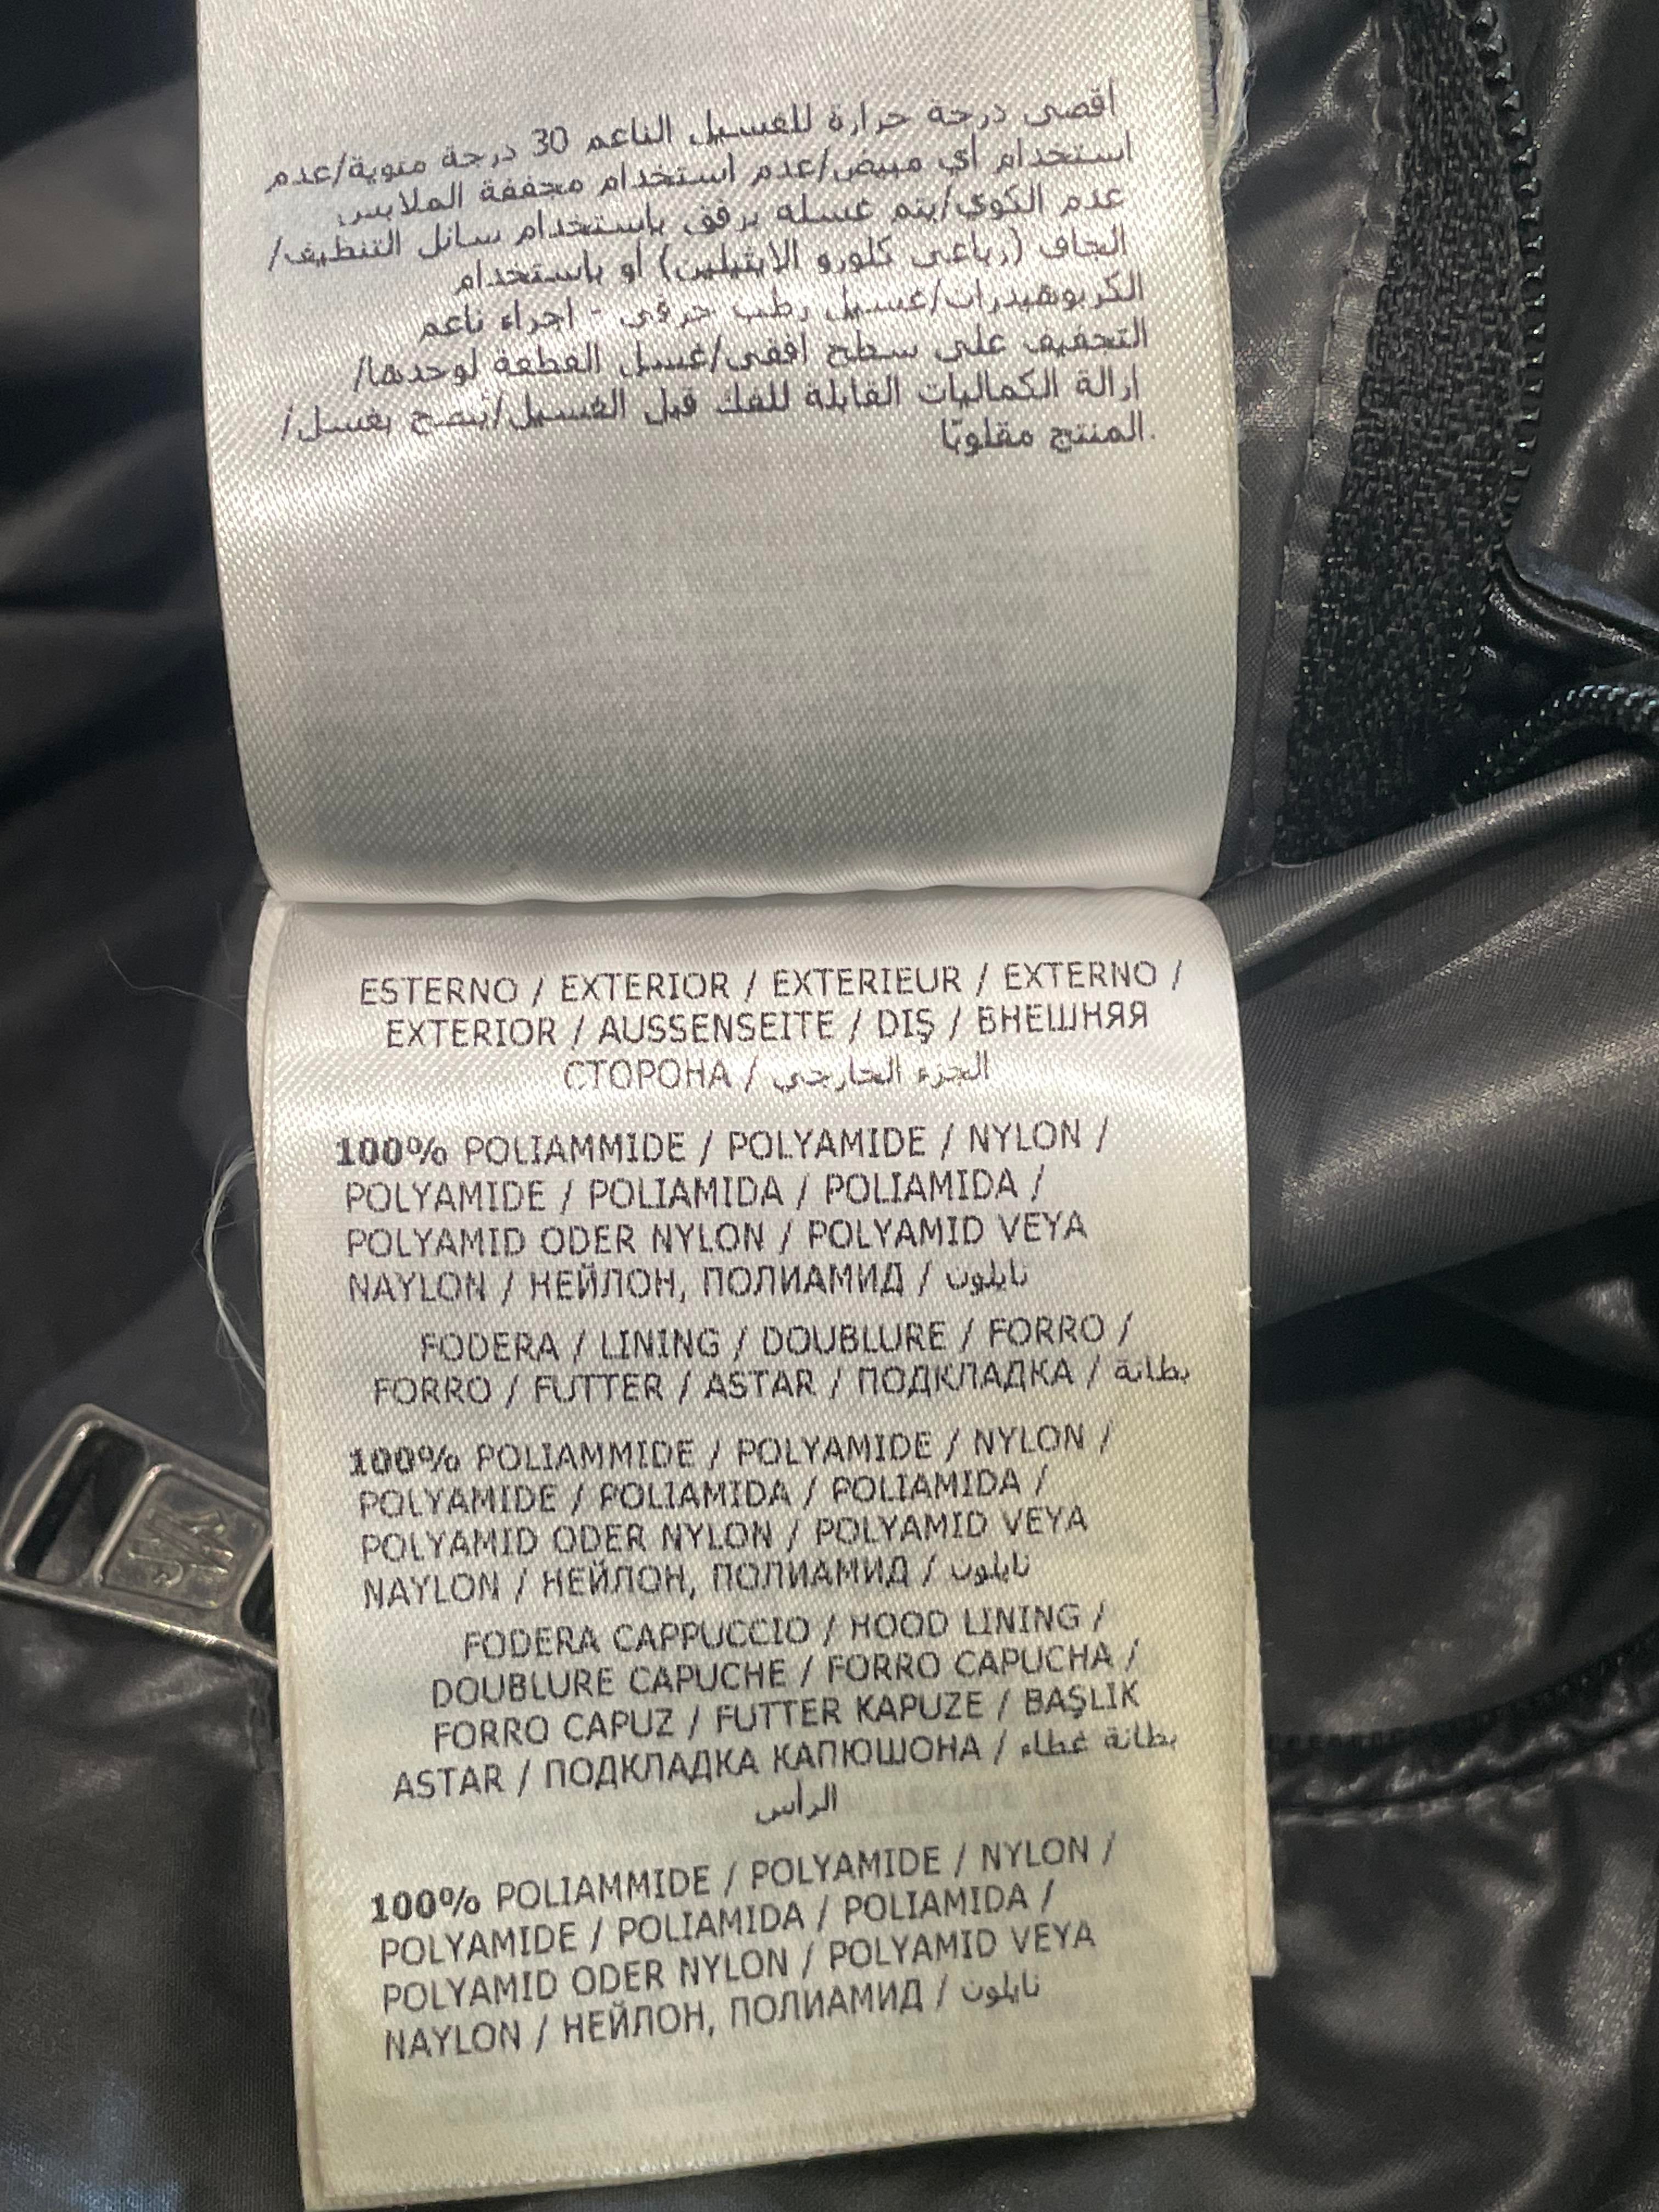 اقصى درجة حرارة للغسيل الناعم 30 درجة مئوية/عدم
استخدام أي مبيض/عدم استخدام مجففة الملابس
عدم الكوي/يتم غسله برفق باستخدام سائل التنظيف/
الجاف (رباعى كلورو الايثيلين) أو باستخدام
الكربوهيدرات/غسيل رطب حرفى - اجراء ناعم
التجفيف على سطح افقى/غسل القطعة لوحدها/
ازالة الكماليات القابلة للفك قبل الغسيل/يُنصح بغسل/
المنتج مقلوبًا.
ESTERNO / EXTERIOR / EXTERIEUR / EXTERNO /
EXTERIOR / AUSSENSEITE / DIŞ / ВНЕШНЯЯ
СТОРОНА / الجزء الخارجي
100% POLIAMMIDE / POLYAMIDE / NYLON /
POLYAMIDE / POLIAMIDA / POLIAMIDA /
POLYAMID ODER NYLON / POLYAMID VEYA
NAYLON / НЕЙЛОН, ПОЛИАМИД / نايلون
FODERA / LINING / DOUBLURE / FORRO /
FORRO / FUTTER / ASTAR / ПОДКЛАДКА / بطانة
100% POLIAMMIDE / POLYAMIDE / NYLON /
POLYAMIDE / POLIAMIDA / POLIAMIDA /
POLYAMID ODER NYLON / POLYAMID VEYA
NAYLON / НЕЙЛОН, ПОЛИАМИД / نايلون
FODERA CAPPUCCIO / HOOD LINING /
DOUBLURE CAPUCHE / FORRO CAPUCHA /
FORRO CAPUZ / FUTTER KAPUZE / BAŞLIK
ASTAR / ПОДКЛАДКА КАПЮШОНА / بطانة غطاء
الرأس
100% POLIAMMIDE / POLYAMIDE / NYLON /
POLYAMIDE / POLIAMIDA / POLIAMIDA /
POLYAMID ODER NYLON / POLYAMID VEYA
NAYLON / НЕЙЛОН, ПОЛИАМИД / نايلون